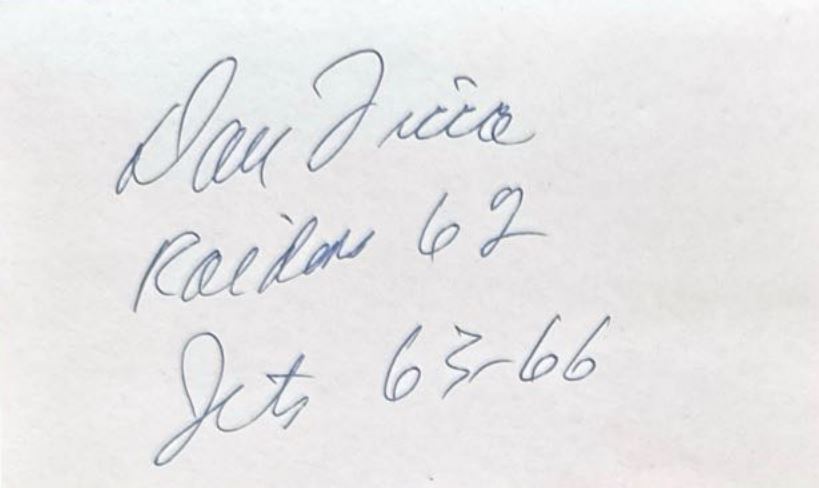 Dan Ficca
Raiders 62
Jets 63-66